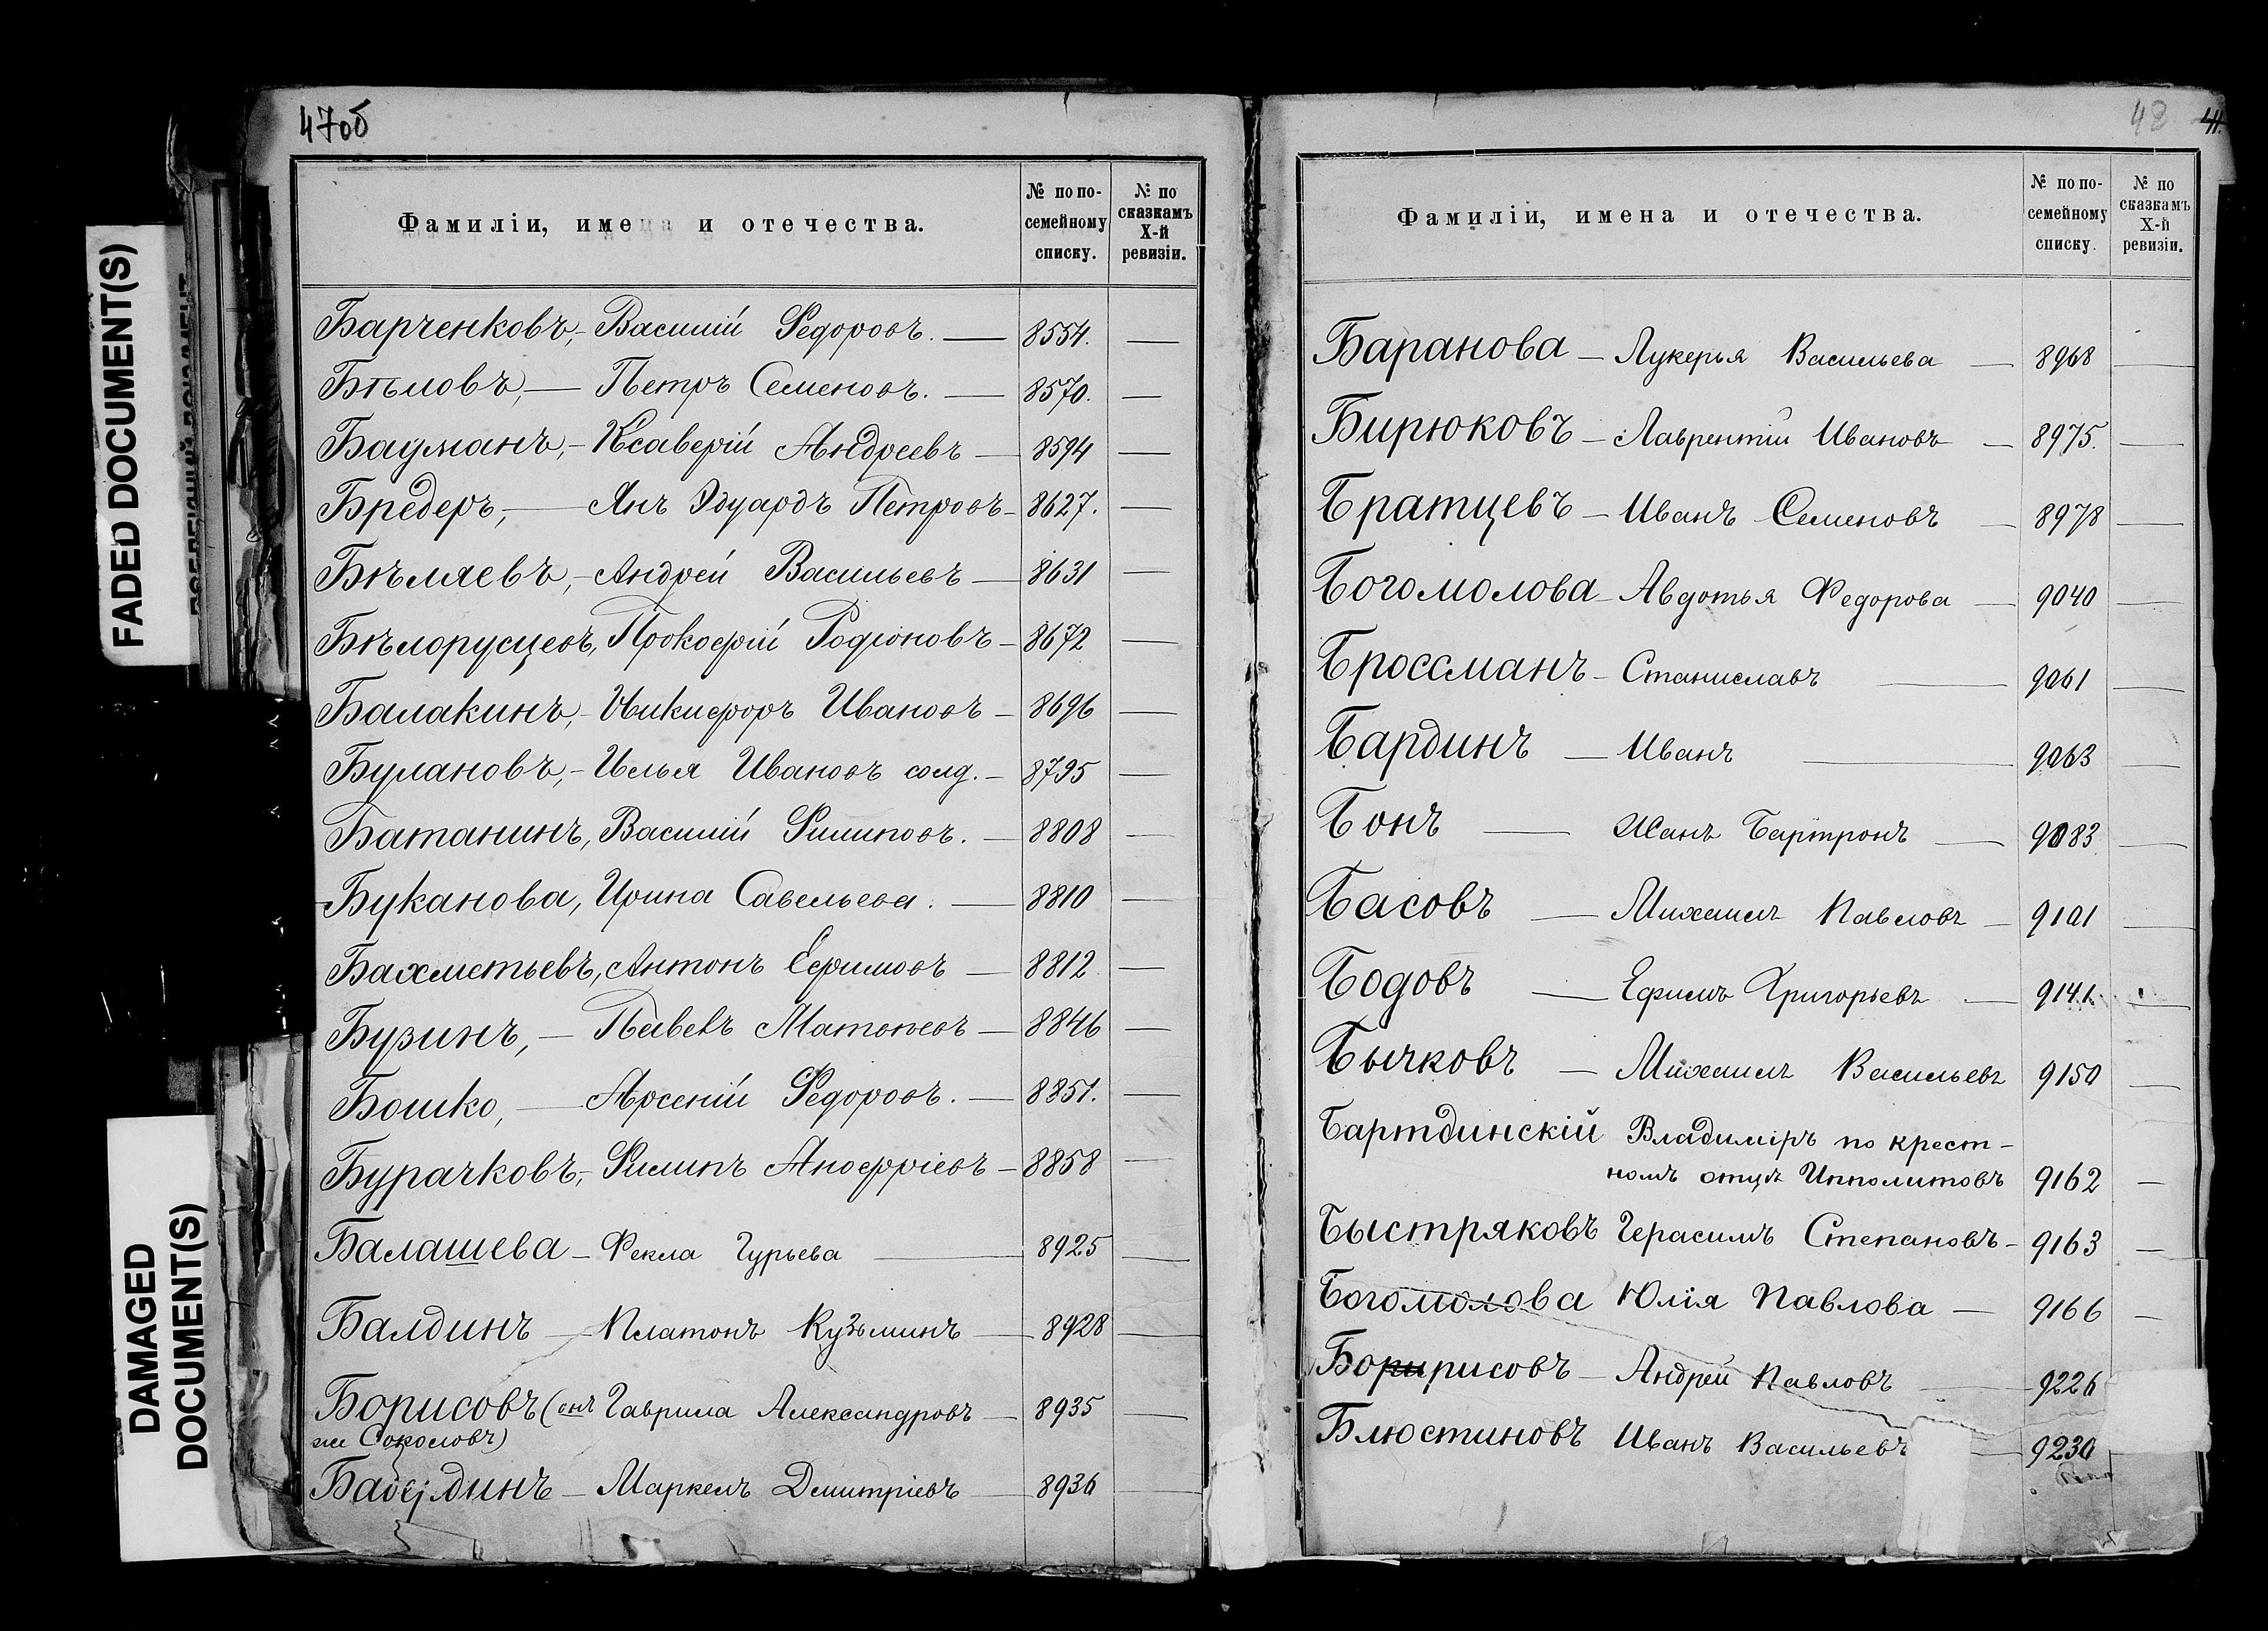 47об
FADED DOCUMENT(S)
DAMAGED
DOCUMENT(S)
Фамиліи, имена и отечества.
№ по по-
семейному
списку.
№ по
сказкамъ
X-й
ревизіи.
Барченковъ,- Василій Федоровъ. — 8554. —
Бѣловъ, — Петръ Семеновъ. — 8570. —
Бауманъ,- Ксаверій Андреевъ — 8594 —
Бредеръ, — Янъ Эдуардъ Петровъ - 8627. —
Бѣляевъ,- Андрей Васильевъ — 8631 —
Бѣлорусцевъ, Прокофій Родіоновъ - 8672 —
Балакинъ,- Никифоръ Ивановъ - 8696 —
Булановъ,- Илья Ивановъ солд. - 8795 —
Батанинъ, Василій Филиповъ. — 8808 —
Буканова, Ирина Савельева. — 8810 —
Бахметьевъ, Антонъ Ефимовъ — 8812 —
Бузинъ, — Павелъ Матвѣевъ — 8846 —
Бошко, — Арсеній Федоровъ. — 8851. —
Бурачковъ,- Филипъ Аноффіевъ - 8858 —
Балашева - Фекла Гурьева — 8925 —
Балдинъ — Платонъ Кузьминъ — 8928 —
Борисовъ (онъ Гаврила Александровъ — 8935 —
же Соколовъ)
Маркелъ Дмитріевъ — 8936 —
48 41.
Фамиліи, имена и отечества.
№ по по-
семейному
списку.
№ по
сказкамъ
X-й
ревизіи.
Баранова - Лукерья Васильева — 8968 —
Бирюковъ - Лаврентій Ивановъ — 8975. —
Братцевъ - Иванъ Семеновъ — 8978 —
Богомолова - Авдотья Федорова — 9040 —
Броссманъ - Станиславъ — 9061 —
Бардинъ — Иванъ — 9063 —
Бонъ — Жанъ Бартронъ — 9083 —
Басовъ — Михаилъ Павловъ — 9101 —
Бодовъ — Ефимъ Григорьевъ — 9141. —
Бычковъ — Михаилъ Васильевъ 9150 —
Бартдинскій Владиміръ по крест-
номъ отцѣ Ипполитовъ 9162 —
Быстряковъ Герасимъ Степановъ - 9163 —
Богомолова Юлія Павлова — 9166 —
Боририсовъ - Андрей Павловъ — 9226
Блюстиновъ Иванъ Васильевъ — 9230